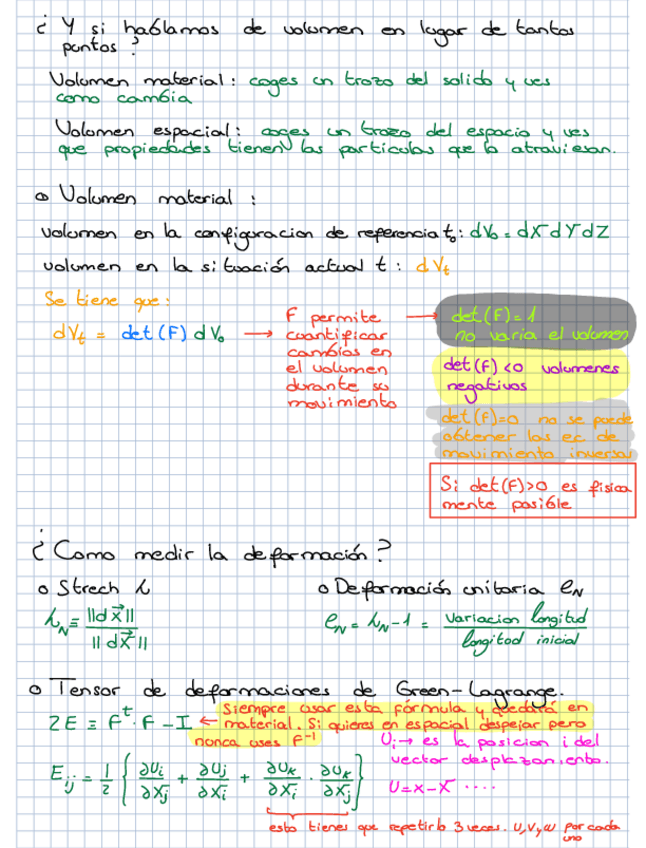 ¿ Y si hablamos de volumen en lugar de tantos
puntos ?
Volumen material : coges un trozo del solido y ves
como cambia
Volumen espacial : coges un trozo del espacio y ves
que propiedades tienen las particulas que lo atraviesan.
o Volumen material :
volumen en la configuracion de referencia t₀ : dV₀ = dX dY dZ
volumen en la situación actual t : dVt
Se tiene que :
dVt = det (F) dV₀ →
F permite →
cuantificar
cambios en
el volumen
durante su
movimiento
det (F) = 1
no varia el volumen
det (F) <0 volumenes
negativos
det (F)=0 no se puede
obtener las ec de
movimiento inversa
Si det(F)>0 es fisica
mente posible
¿ Como medir la deformación ?
o Strech λ
λN ≡ ||dx⃗|| / ||dX⃗||
o Deformación unitaria eN
eN = λN - 1 = Variacion longitud / longitud inicial
o Tensor de deformaciones de Green-Lagrange.
2E ≡ Fᵗ · F - I ←
Siempre usar esta fórmula y quedará en
material. Si quieres en espacial despejar pero
nunca uses F⁻¹
Ui → es la posicion i del
vector desplazamiento.
U = x - X ....
Eij = 1/2 { ∂Ui/∂Xj + ∂Uj/∂Xi + ∂Uk/∂Xi · ∂Uk/∂Xj }
esto tienes que repetirlo 3 veces. U, V y W por cada
uno